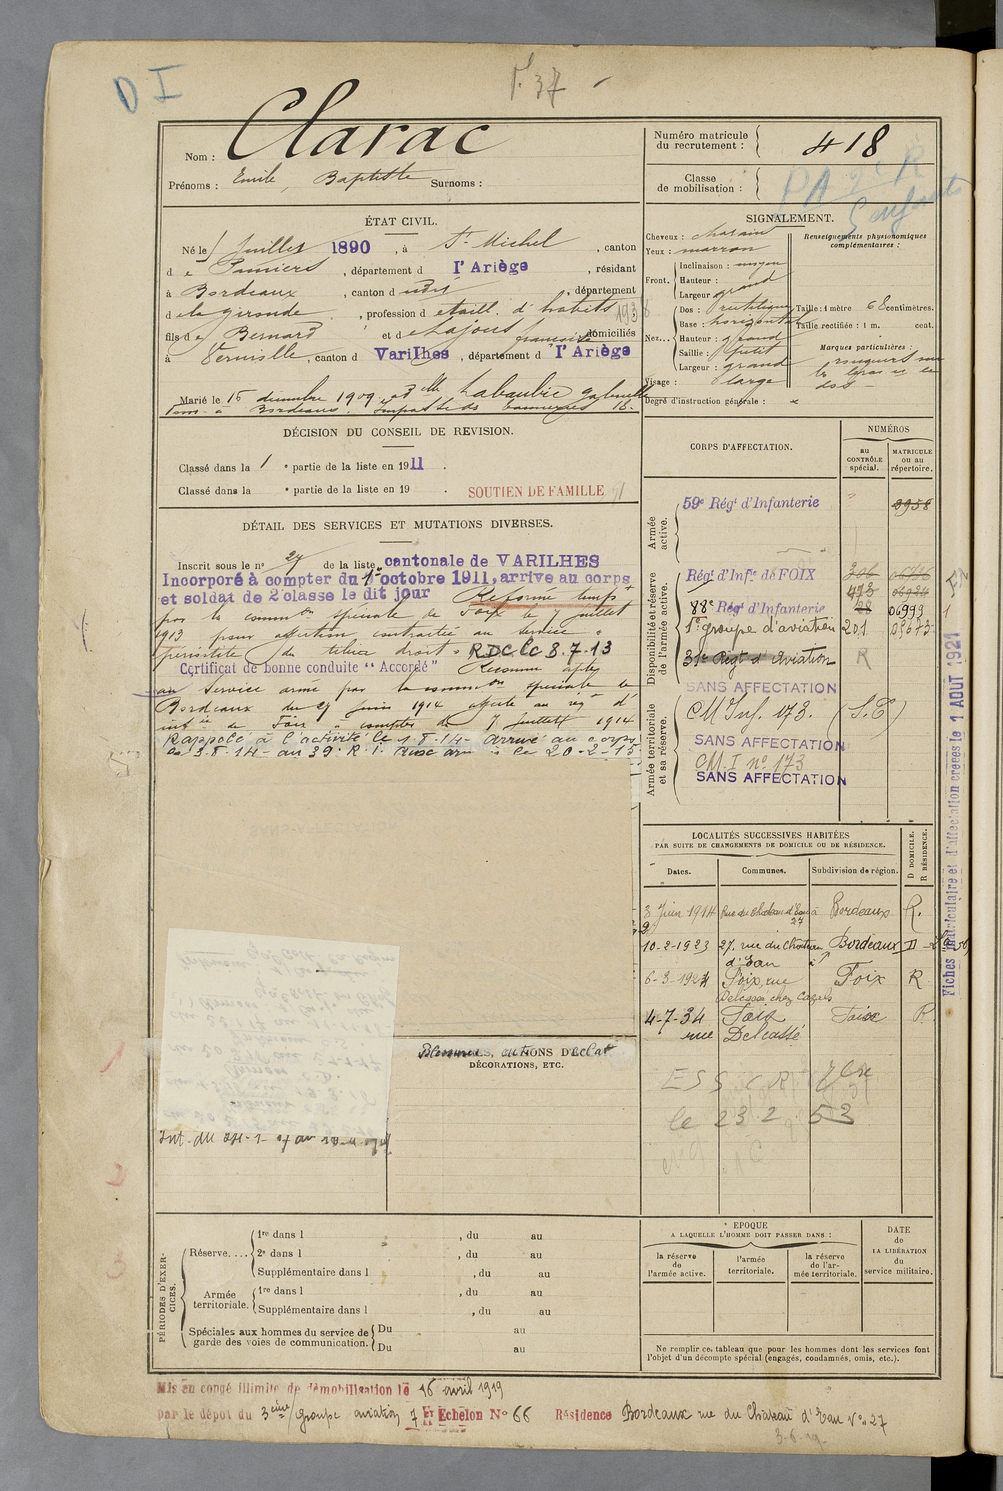 D I
F. 37
Nom : Clarac
Prénoms : Emile, Baptiste Surnoms :
Numéro matricule du recrutement : 418
Classe de mobilisation :
PA 2e R
5 enfants
ÉTAT CIVIL.
Né le 1 Juillet 1890, à St Michel, canton
de Pamiers, département d l'Ariège, résidant
à Bordeaux, canton d dudit, département
d e la Gironde, profession d e taill. d'habits 1938
fils d e Bernard et d e Lajous françoise domiciliés
à Vernielle, canton d Varilhes, département d l'Ariège
Marié le 16 décembre 1909 à Mlle Labaubie Gabrielle
DÉCISION DU CONSEIL DE REVISION.
Classé dans la 1e partie de la liste en 1911.
Classé dans la e partie de la liste en 19 .
SOUTIEN DE FAMILLE
DÉTAIL DES SERVICES ET MUTATIONS DIVERSES.
Inscrit sous le no 27 de la liste cantonale de VARILHES
Incorporé à compter du 1er octobre 1911, arrive au corps
et soldat de 2e classe le dit jour Réformé tempre
par la common spéciale de Foix le 7 juillet
1913 pour affection contractée au service
péristite du tibia droit. RDC le 8.7.13
Certificat de bonne conduite "Accordé" Reconnu apte
au Service armé par la common spéciale de
Bordeaux du 29 juin 1914 affecté au rég d'
infie de Foix à compter du 7 juillet 1914
Rappelé à l'activité le 1-8-14- Arrivé au corps
le 3-8-14- au 39. R.I. aux armées le 20-2-15
Int. du 24-1-
Blessures, ACTIONS D'Eclat
DÉCORATIONS, ETC.
SIGNALEMENT.
Cheveux : chatain
Yeux : marron
Front. Inclinaison : moyen
Hauteur :
Largeur grand
Nez... Dos : rectiligne
Base : horizontal
Hauteur : grand
Saillie : petit
Largeur : grand
Visage : large
Renseignements physionomiques complémentaires :
Taille : 1 mètre 68 centimètres.
Taille rectifiée : 1 m. cent.
Marques particulières :
rougeurs sur
les bras et le
dos
Degré d'instruction générale :
CORPS D'AFFECTATION.
NUMÉROS
au CONTRÔLE spécial.
MATRICULE ou au répertoire.
Armée active.
59e Régt d'Infanterie 3958
Disponibilité et réserve de l'armée active.
Régt d'Infie de FOIX
88e Régt d'Infanterie 28 06999
1er groupe d'aviation 201 05673
31e Régt d'Aviation R
SANS AFFECTATION
Armée territoriale et sa réserve.
CM Inf. 173. (S.E)
SANS AFFECTATION
CM.I no 173
SANS AFFECTATION
Fiches matriculaire et d'affectation créées le 1 AOUT 1921
LOCALITÉS SUCCESSIVES HABITÉES
PAR SUITE DE CHANGEMENTS DE DOMICILE OU DE RÉSIDENCE.
Dates. Communes. Subdivision de région. D DOMICILE. R RÉSIDENCE.
3 Juin 1914 Rue du Chateau d'Eau 27 Bordeaux R.
10-2-1923 27, rue du Château d'Eau Bordeaux D
6-3-1924 Foix, rue Delcassé chez Cazals Foix R
4-7-34 Foix rue Delcassé Foix R
ESS C R
le 23 2 53
PÉRIODES D'EXERCICES.
Réserve.... 1re dans l , du au
2e dans l , du au
Supplémentaire dans l , du au
Armée territoriale. 1re dans l , du au
Supplémentaire dans l , du au
Spéciales aux hommes du service de garde des voies de communication. Du au
Du au
EPOQUE
A LAQUELLE L'HOMME DOIT PASSER DANS :
la réserve de l'armée active.
l'armée territoriale.
la réserve de l'armée territoriale.
DATE de LA LIBÉRATION du service militaire.
Ne remplir ce tableau que pour les hommes dont les services font
l'objet d'un décompte spécial (engagés, condamnés, omis, etc.).
Mis en congé illimité de démobilisation le 16 avril 1919
par le dépôt du 3eme groupe aviation 7 Echelon No 66 Résidence Bordeaux rue du Château d'Eau No 27